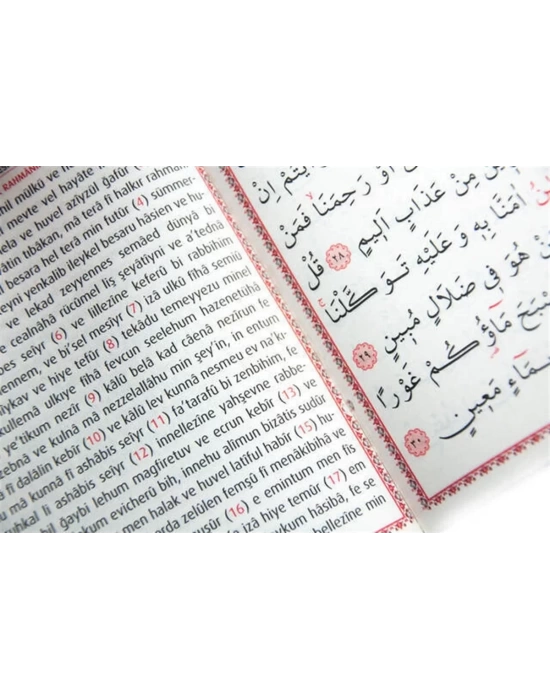 RAHMAN
hil mülkü ve
l mevte vel hayâte
ela ve huvel azîyzül gafûr
âtin tıbâkan, mâ terâ fî halkır rahman
l besara hel terâ min futûr (4) sümmer-
eyni yenkalib ileykel besaru hâsien ve hu-
ve lekad zeyyennes semâed dünyâ bi
ve cealnâhâ rücûmel liş şeyâtiyni ve a'tednâ
bes seiyr (6) ve lillezîne keferû bi rabbihim
ennem, ve bi'sel mesıyr (7) izâ ulkû fîhâ semiû
ıykav ve hiye tefûr (8) tekâdu temeyyezu minel
kullemâ ulkıye fîhâ fevcun seelehum hazenetühâ
e'tikum nezîr (9) kâlû belâ kad câenâ nezîrun fe
zebnâ ve kulnâ mâ nezzelallâhu min şey'in, in entum
â fî dalâlin kebîr (10) ve kâlû lev kunnâ nesmeu ev na'k-
u mâ kunnâ fî ashâbis seiyr (11) fa'tarafû bi zenbihim, fe
uhkal li ashâbis seiyr (12) innellezîne yahşevne rabbe-
bil ğaybi lehum magfiretuv ve ecrun kebîr (13) ve
kum evicherû bih, innehu alîmun bizâtis sudûr
men halak ve huvel latîful habîr (15) hu-
arda zelûlen femşû fî menâkibihâ ve
nuşûr (16) e emintum men fis
izâ hiye temûr (17) em
aykum hâsibâ, fe se
bellezîne min
اَوْ رَحِمَنَا فَمَنْ
مِنْ عَذَابٍ اَلٖيمٍ ٢٨ قُلْ
اٰمَنَّا بِهٖ وَعَلَيْهِ تَوَكَّلْنَا
هُوَ فٖى ضَلَالٍ مُبٖينٍ ٢٩
مَٓاؤُ۬كُمْ غَوْرًا
مَعٖينٍ ٣٠